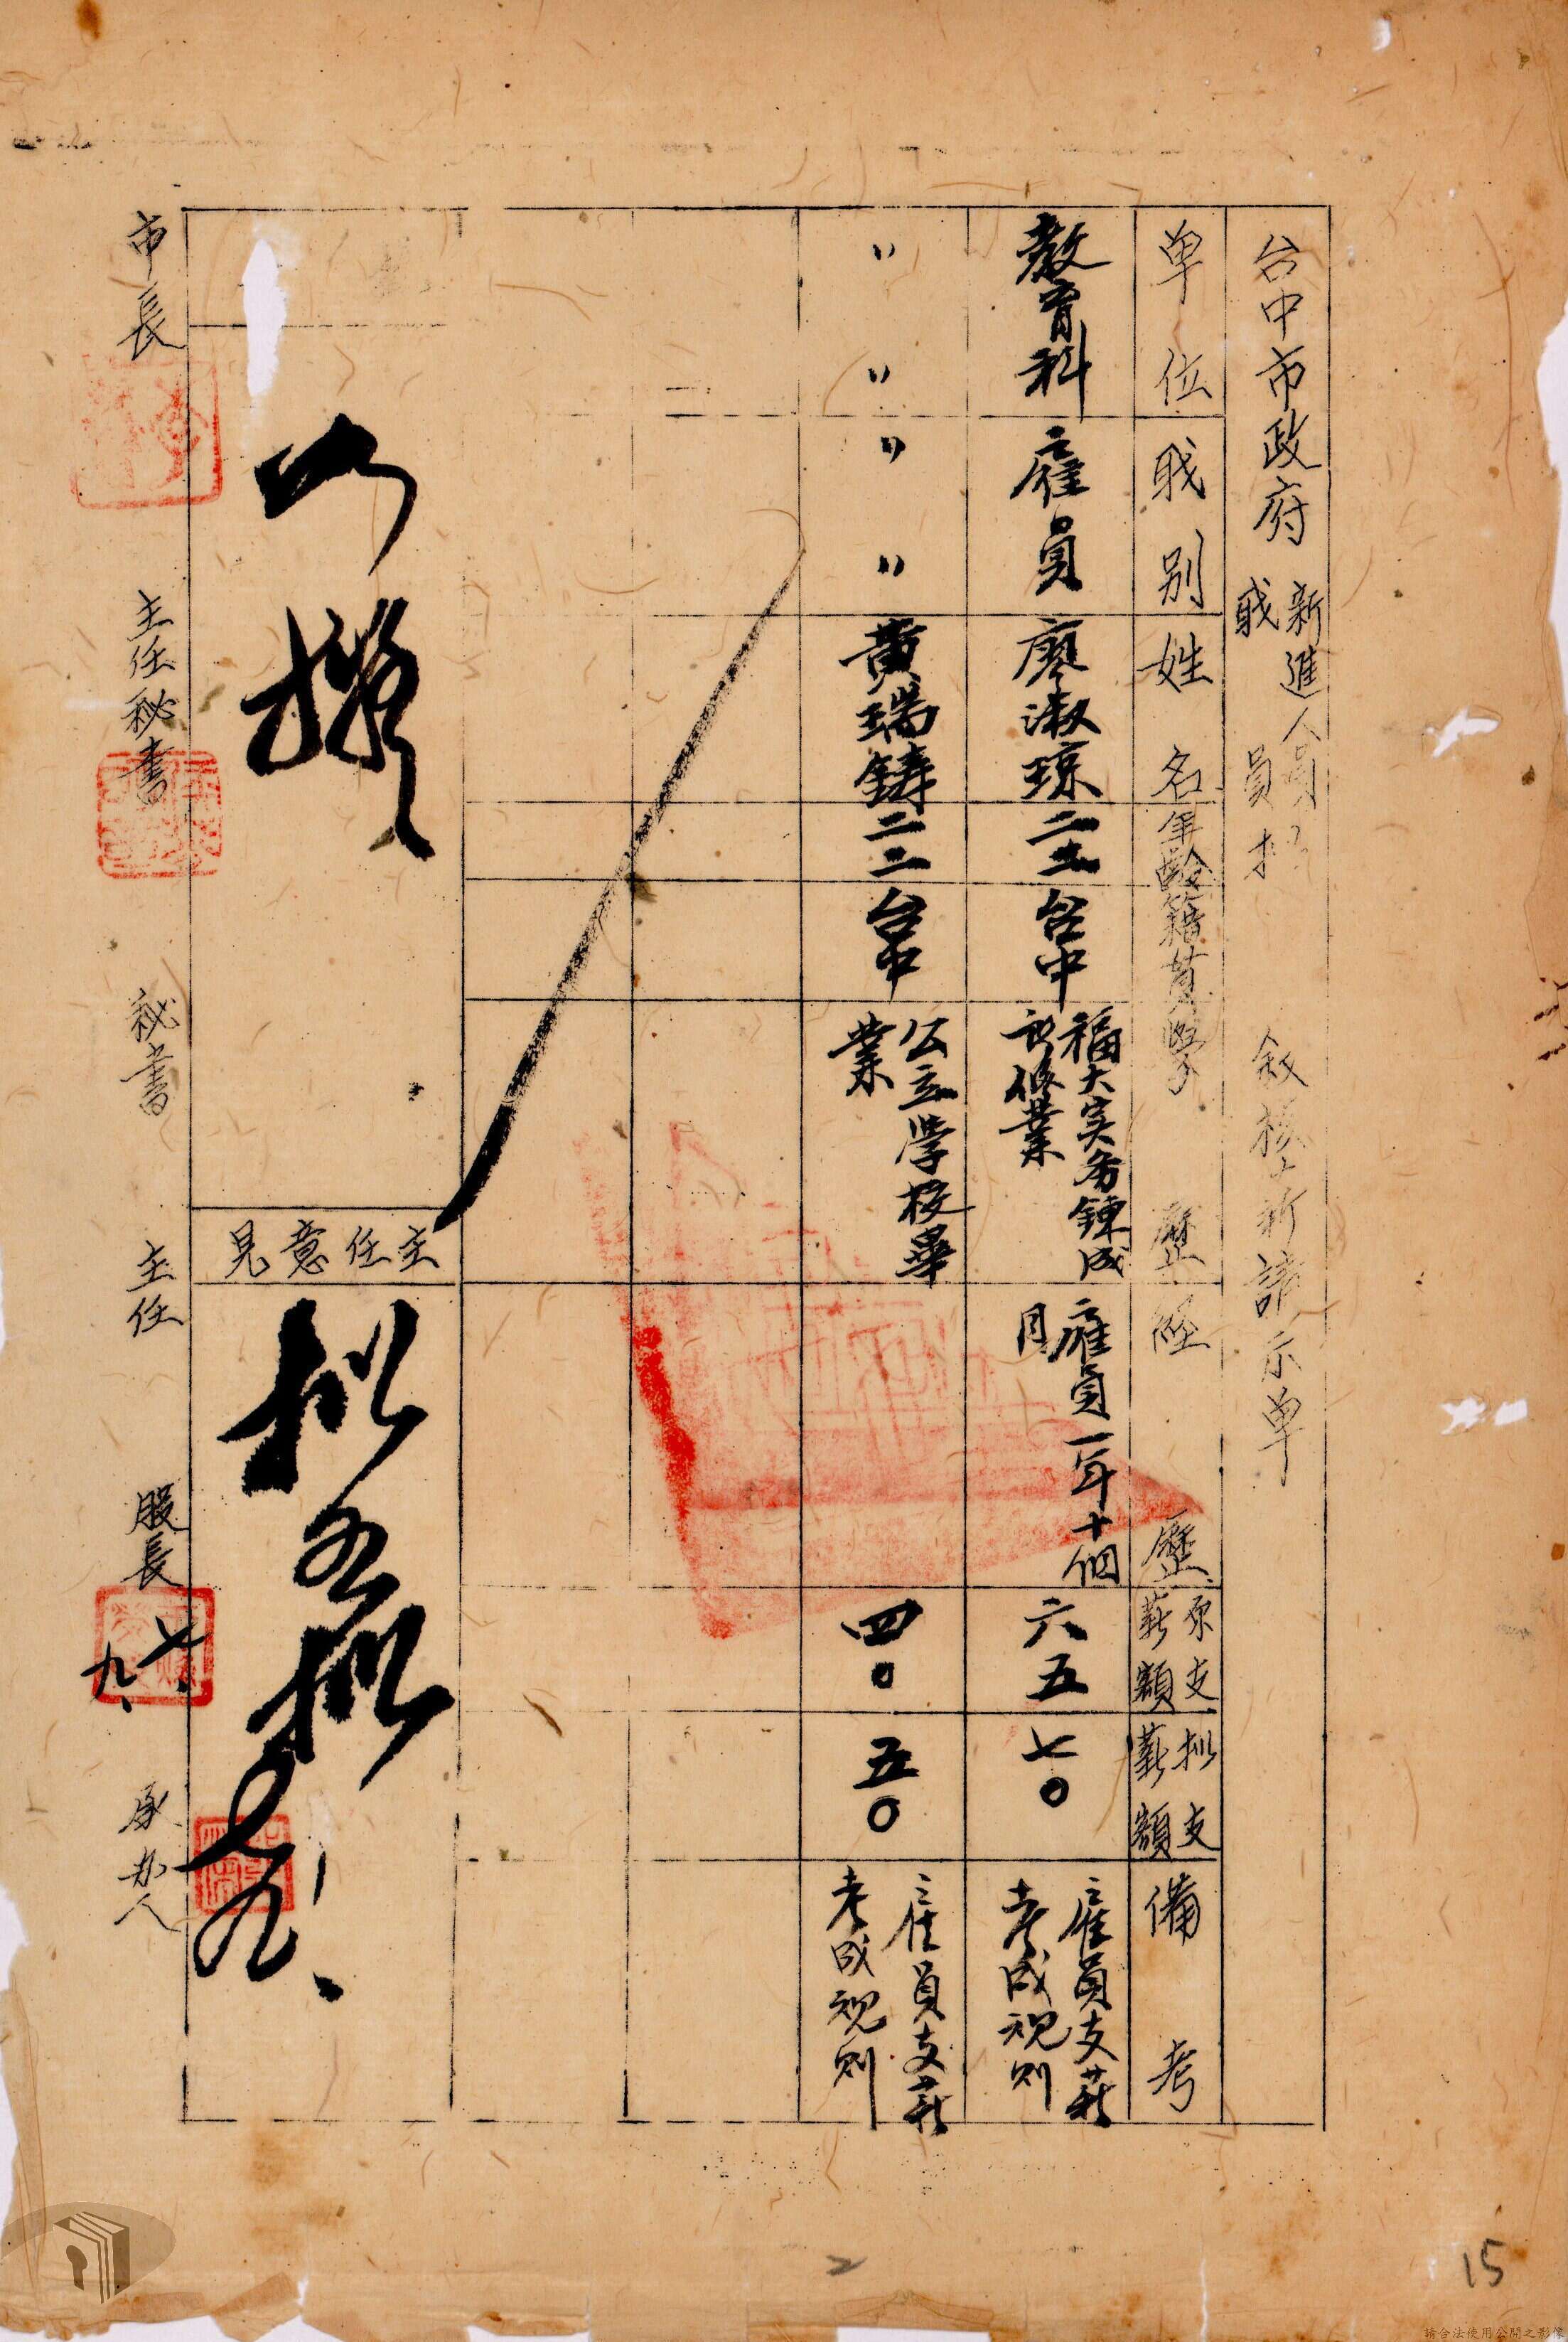 台中市政府
新進人員
職員
敘核薪請示單
單位
職別
姓名
年齡
籍貫
學歷
經歷
原支薪額
擬支薪額
備考
教育科
雇員
廖淑琼
二五
台中
福大实务鍊成
所修業
雇員一年十個
月
六五
七〇
雇員支薪
考成規則
〃〃
〃〃
黄瑞鑄
二二
台中
公立学校畢
業
四〇
五〇
雇員支薪
考成規則
主任意見
擬
市長
主任秘書
秘書
主任
股長
七、九、
承办人
2
15
請合法使用公開之影像